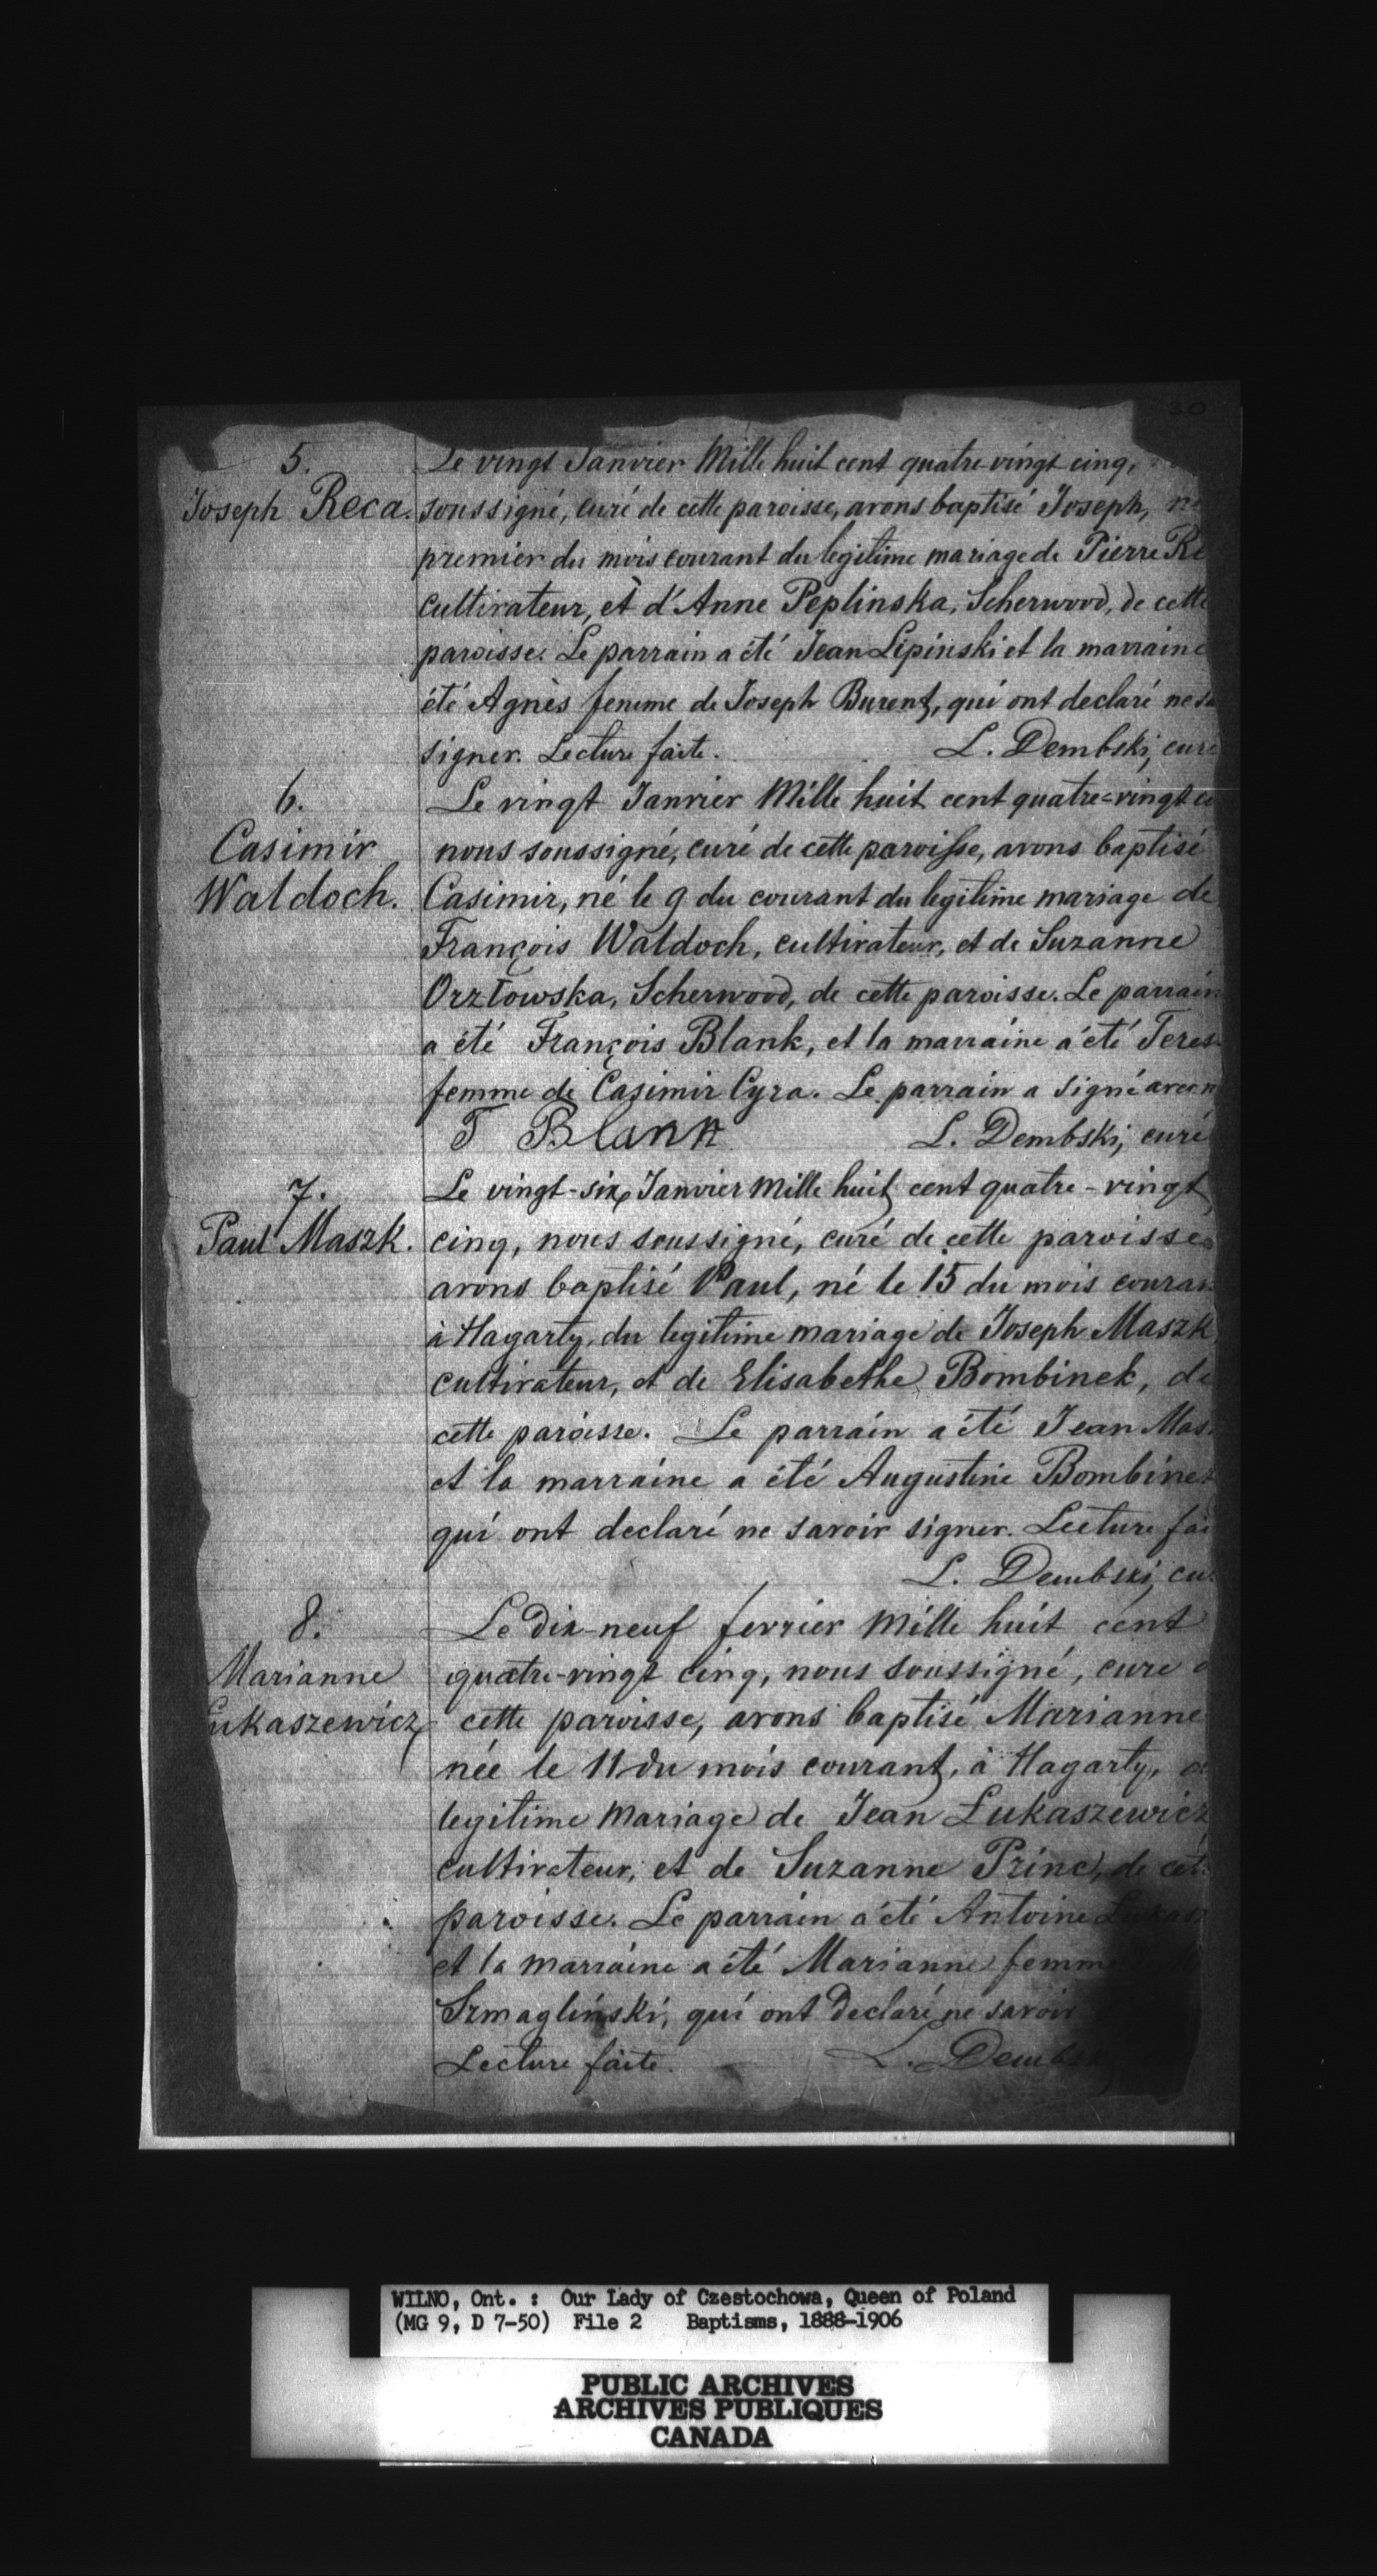 30
5.
Joseph Reca.
Le vingt Janvier Mille huit cent quatre-vingt cinq,
soussigné, curé de cette paroisse, avons baptisé Joseph, né
premier du mois courant du legitime mariage de Pierre Re
cultivateur, et d'Anne Peplinska, Scherwood, de cette
paroisse. Le parrain a été Jean Lipinski et la marraine
été Agnès femme de Joseph Burent, qui ont declaré ne sa
signer. Lecture faite. L. Dembski, curé
6.
Casimir
Waldoch.
Le vingt Janvier Mille huit cent quatre-vingt ci
nous soussigné, curé de cette paroisse, avons baptisé
Casimir, né le 9 du courant du legitime mariage de
François Waldoch, cultivateur, et de Suzanne
Orzłowska, Scherwood, de cette paroisse. Le parrain
a été François Blank, et la marraine a été Teres
femme de Casimir Cyra. Le parrain a signé avec n
F Blank L. Dembski, curé
7.
Paul Maszk.
Le vingt-six Janvier Mille huit cent quatre-vingt
cinq, nous soussigné, curé de cette paroisse
avons baptisé Paul, né le 15 du mois couran
à Hagarty, du legitime mariage de Joseph Maszk
cultivateur, et de Elisabethe Bombinek, de
cette paroisse. Le parrain a été Jean Mas
et la marraine a été Augustine Bombinek
qui ont declaré ne savoir signer. Lecture fai
L. Dembski, cu
8.
Marianne
ukaszewicz
Le Dix-neuf fevrier Mille huit cent
quatre-vingt cinq, nous soussigné, cure d
cette paroisse, avons baptisé Marianne
née le 11 du mois courant, à Hagarty, d
legitime mariage de Jean Lukaszewicz
cultivateur, et de Suzanne Princ, de cet
paroisse. Le parrain a été Antoine Lukasz
et la marraine a été Marianne femme
Szmagliński, qui ont Declaré ne savoir
Lecture faite. L. Dembski
WILNO, Ont. : Our Lady of Czestochowa, Queen of Poland
(MG 9, D 7-50) File 2 Baptisms, 1888-1906
PUBLIC ARCHIVES
ARCHIVES PUBLIQUES
CANADA